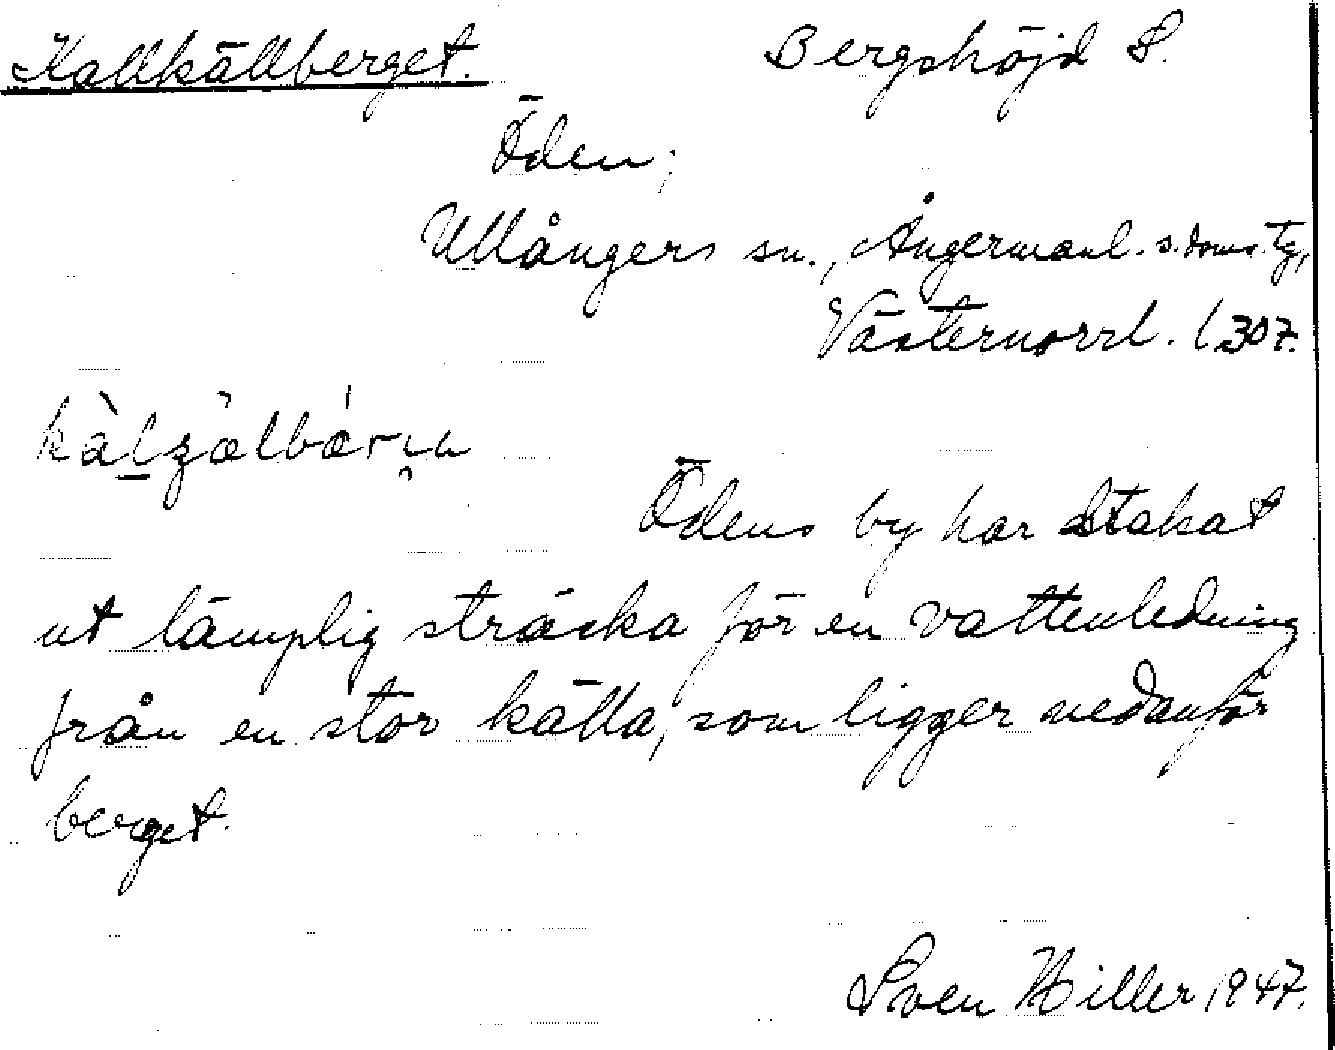 Kallkällberget. Bergshöjd S.
Öden,
Ullångers sn., Ångermanl. s. doms. tg,
Västernorrl. l 307.
Ödens by har stakat
ut lämplig sträcka för en vattenledning
från en stor källa, som ligger nedanför
berget.
Sven Hiller 1947.